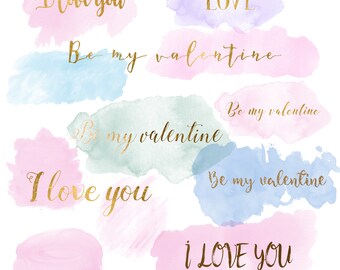 I love you
LOVE
Be my valentine
Be my valentine
Be my valentine
I love you
Be my valentine
I LOVE YOU